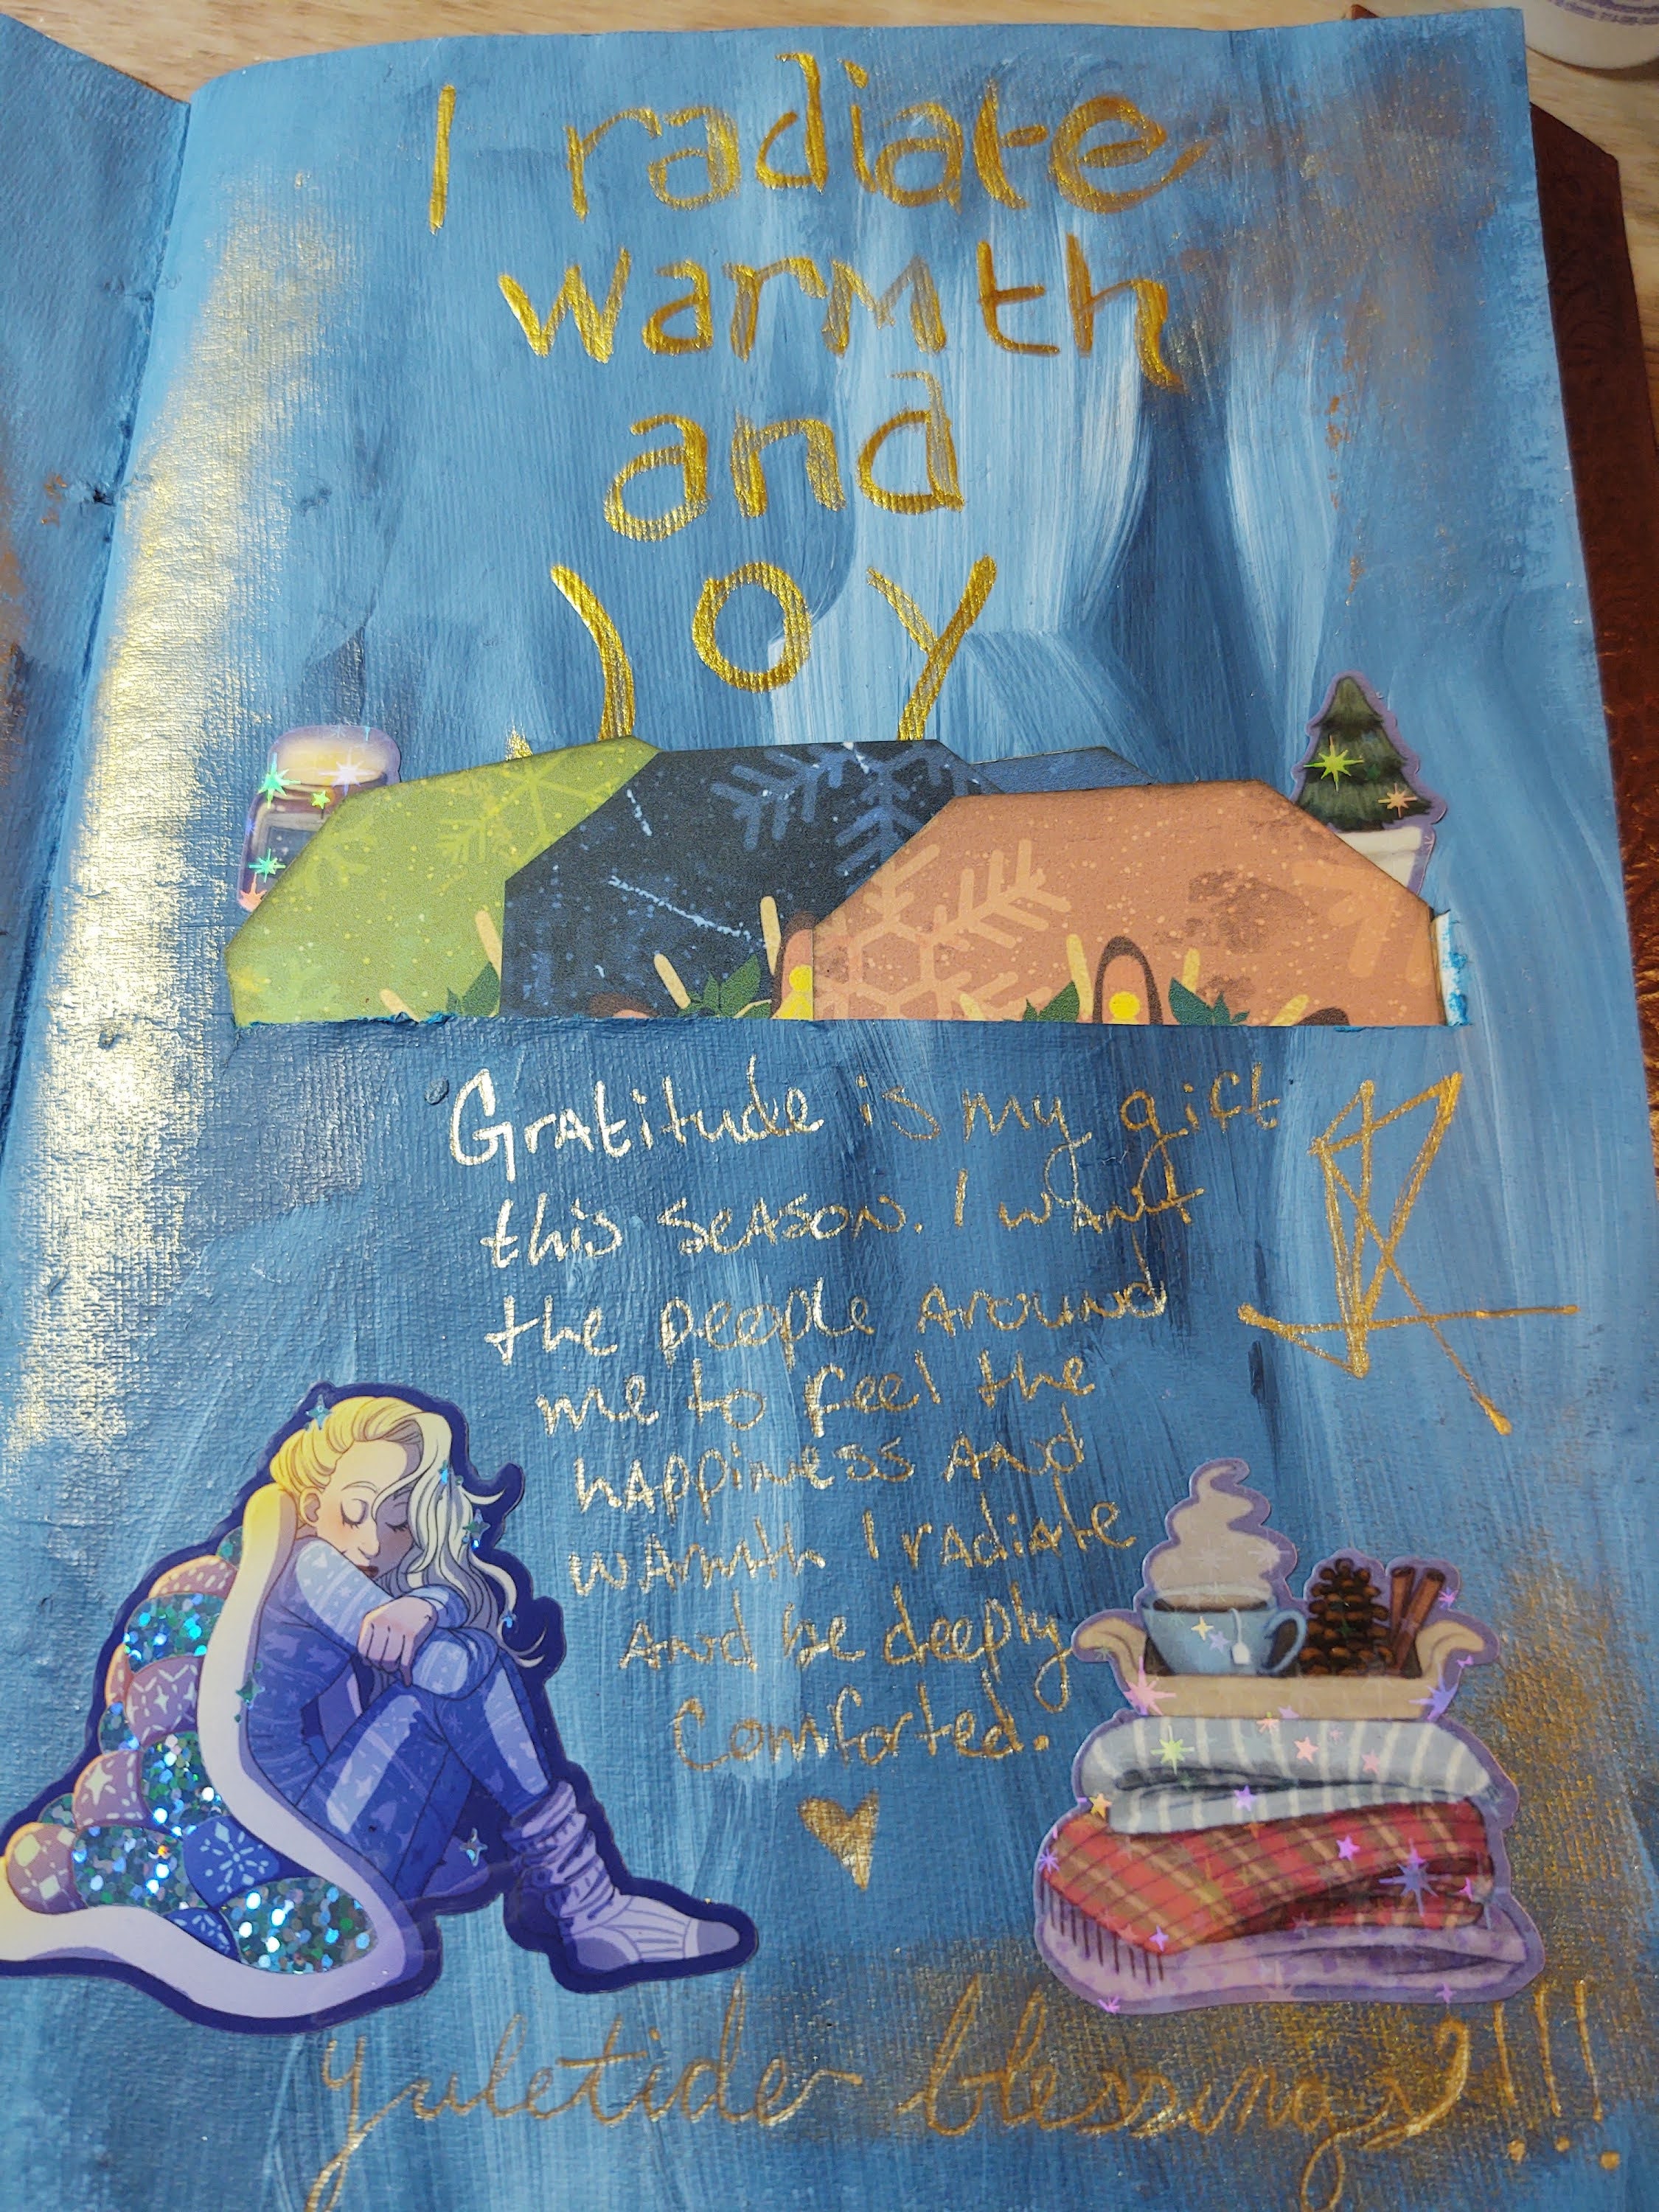 I radiate
warmth
and
Joy
Gratitude is my gift
this season. I want
the people around
me to feel the
happiness and
warmth I radiate
and be deeply
comforted.
yuletide blessings!!!